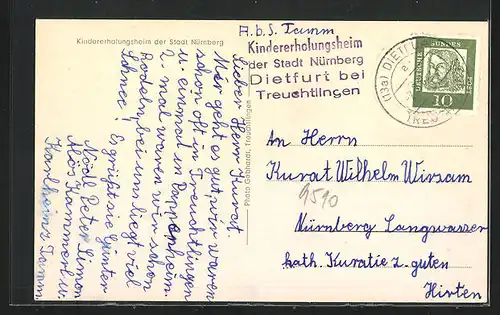 Kindererholungsheim der Stadt Nürnberg
A.b.S. Tamm
Kindererholungsheim
der Stadt Nürnberg
Dietfurt bei
Treuchtlingen
(13a) DIETF
TREU
DEUTSCHE BUNDESPOST
10
lieber Herr Kurat.
Mir geht es gut, wir waren
schon oft in Treuchtlingen
u. einmal in Pappenheim.
2. mal waren wir schon
Rodeln, bei uns liegt viel
Schnee!
Es grüßt sie Günter
Nödl Peter Simon
Alois Kammerl u.
Karlheinz Tamm.
Photo Gebhardt, Treuchtlingen
An Herrn
Kurat Wilhelm Wirzam
9510
Nürnberg Langwasser
kath. Kuratie z. guten
Hirten